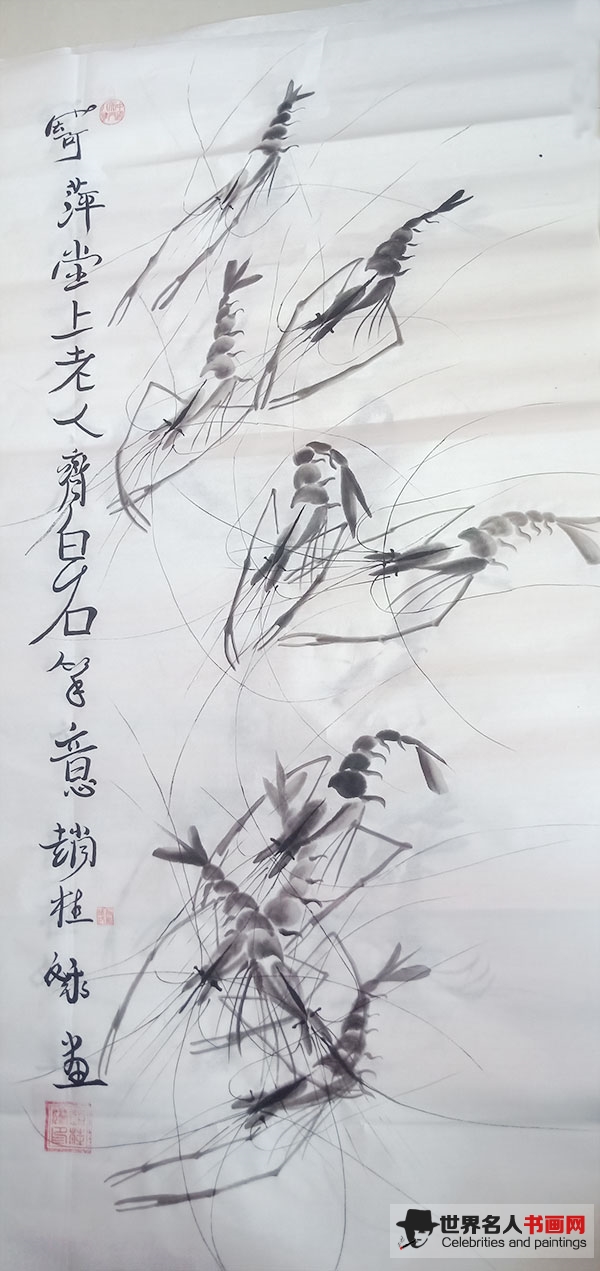 寄萍堂上老人齊白石笔意趙桂画
世界名人书画网
Celebrities and paintings